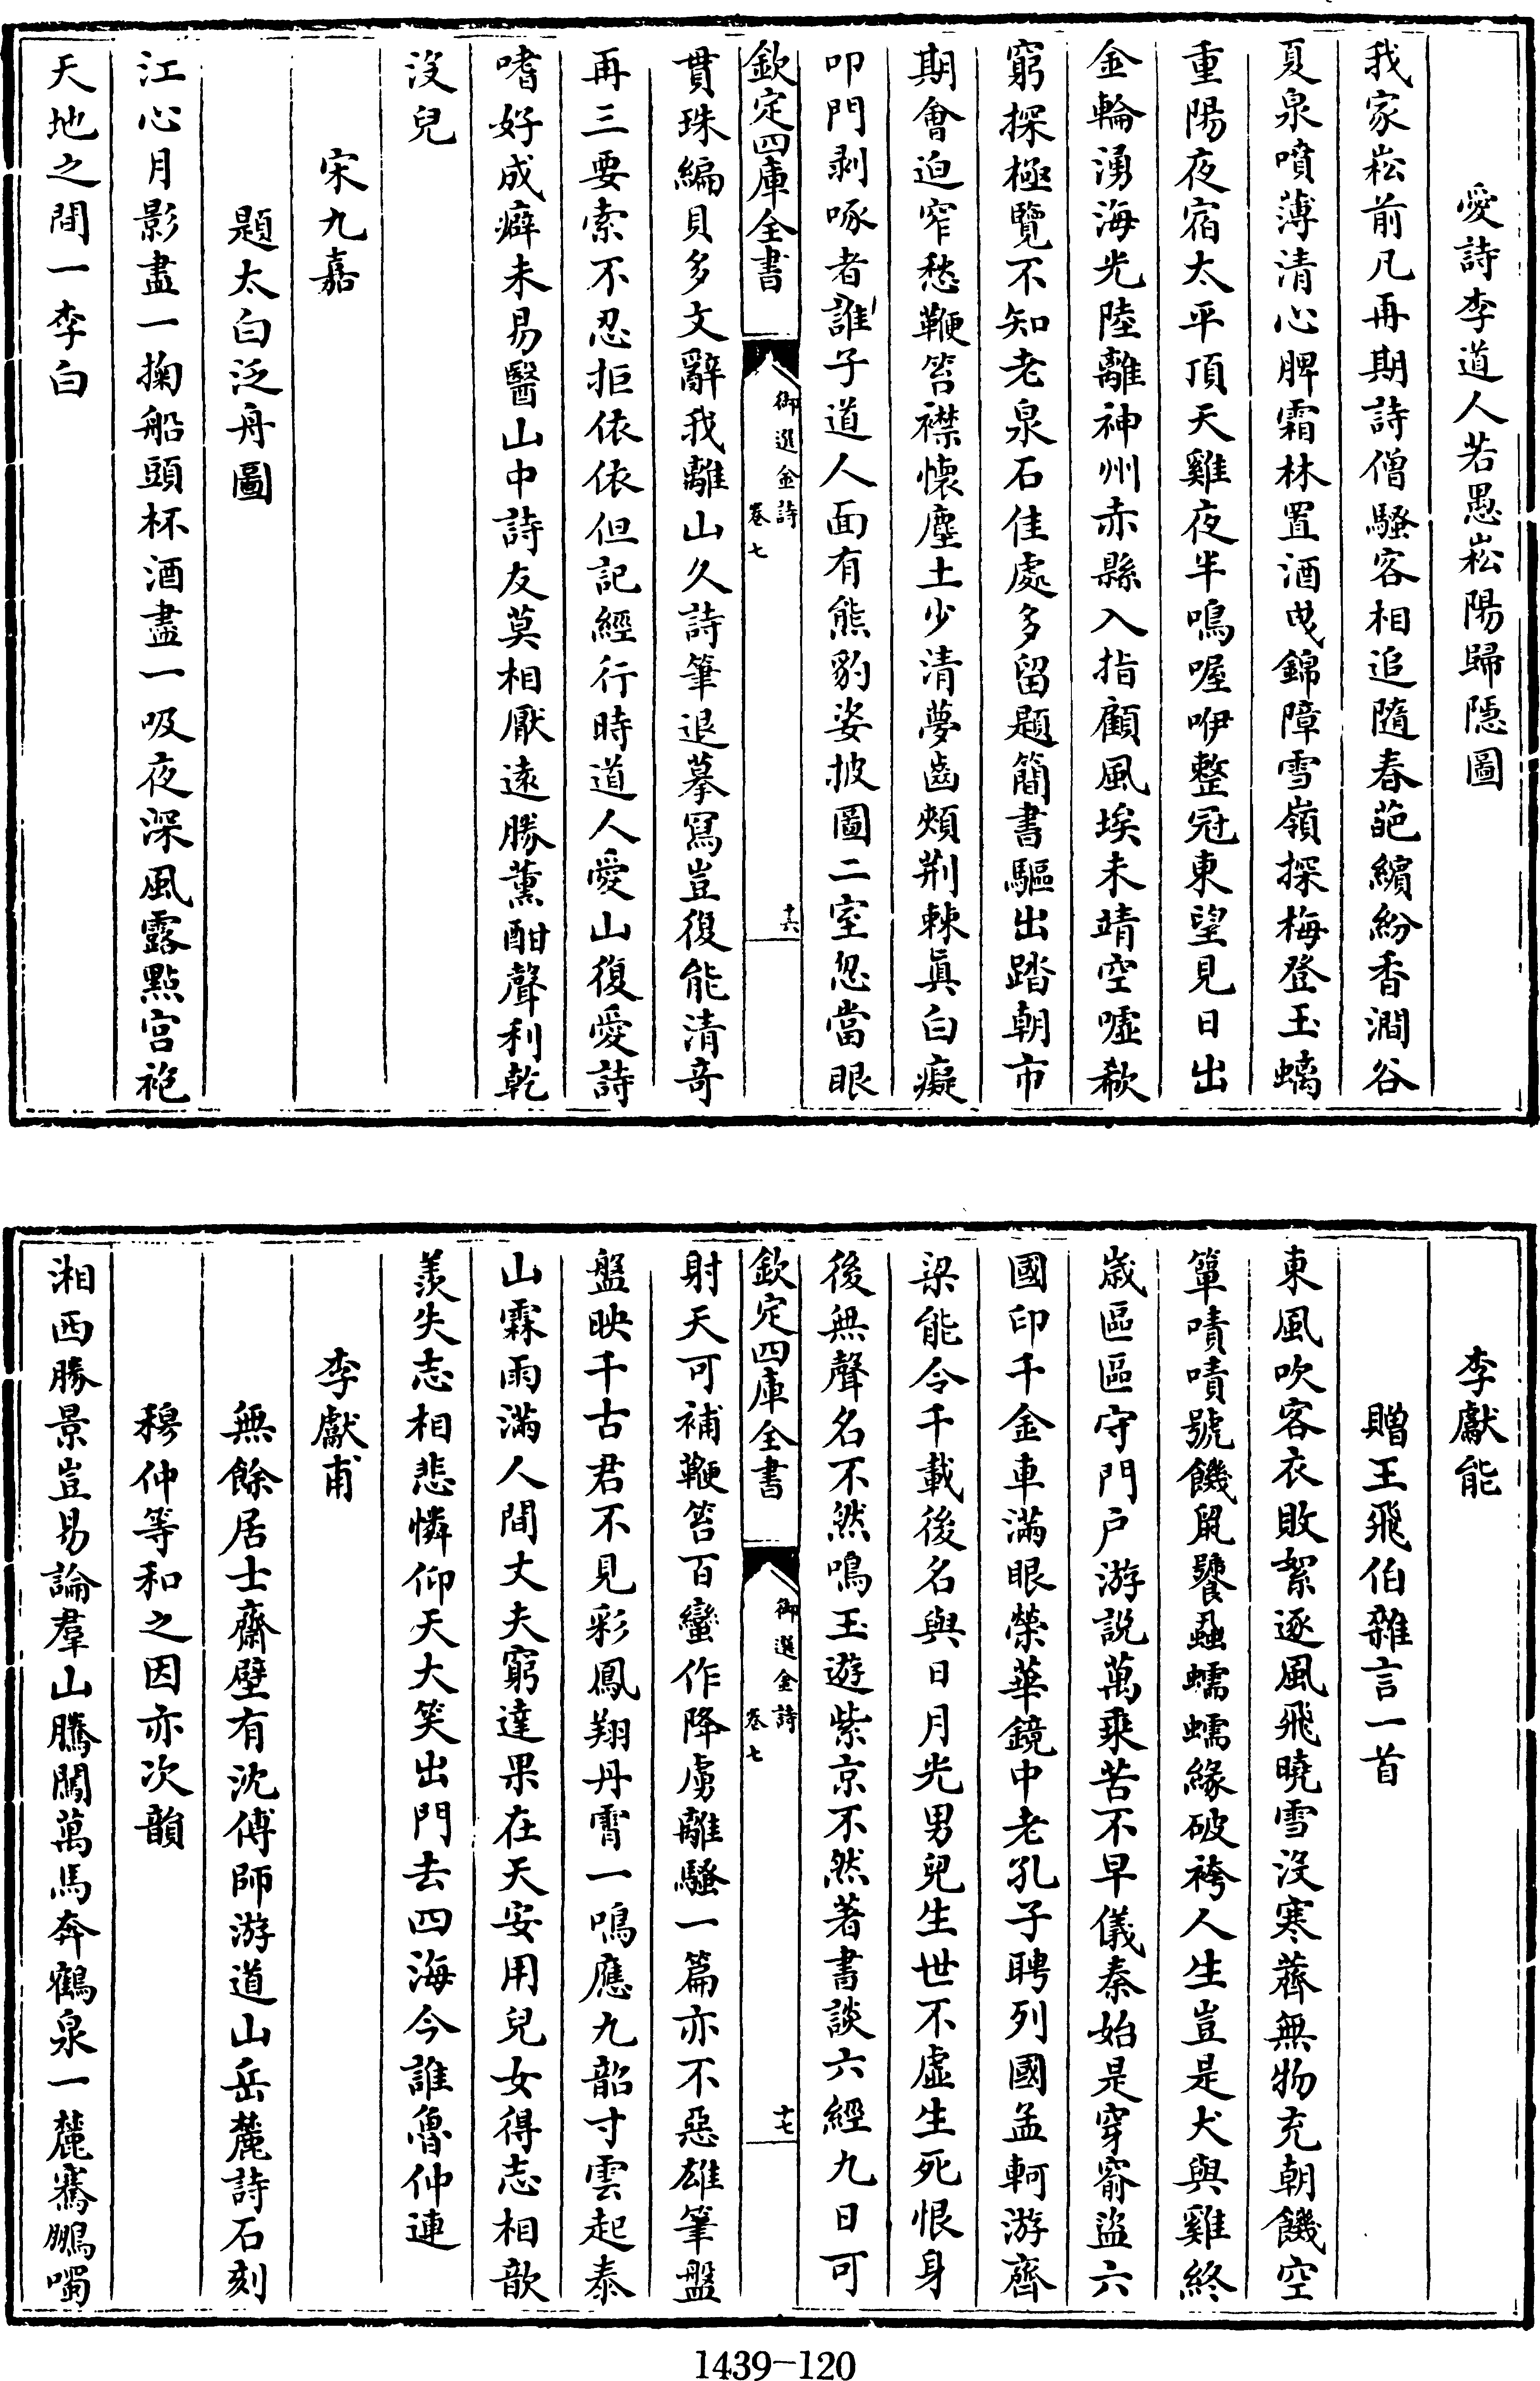 愛詩李道人若愚崧陽歸隱圖
我家崧前凡再期詩僧騷客相追隨春葩繽紛香澗谷
夏泉噴薄清心脾霜林置酒曵錦障雪嶺探梅登玉螭
重陽夜宿太平頂天雞夜半鳴喔咿整冠東望見日出
金輪湧海光陸離神州赤縣入指顧風埃未靖空嘘欷
窮探極覽不知老泉石佳處多留題簡書驅出踏朝市
期會迫窄愁鞭笞襟懷塵土少清夢齒頰荆棘眞白癡
叩門剥啄者誰子道人面有熊豹姿披圖二室忽當眼
欽定四庫全書
御選金詩
卷七
十六
貫珠編貝多文辭我離山久詩筆退摹寫豈復能清奇
再三要索不忍拒依依但記經行時道人愛山復愛詩
嗜好成癖未易醫山中詩友莫相厭遠勝薰酣聲利乾
沒兒
宋九嘉
題太白泛舟圖
江心月影盡一掬船頭杯酒盡一吸夜深風露點宫袍
天地之間一李白
李獻能
贈王飛伯雜言一首
東風吹客衣敗絮逐風飛曉雪沒寒薺無物充朝饑空
簞嘖嘖號饑鼠饕蝨蠕蠕緣破袴人生豈是犬與雞終
歲區區守門戶游説萬乘苦不早儀秦始是穿窬盜六
國印千金車滿眼榮華鏡中老孔子聘列國孟軻游齊
梁能令千載後名與日月光男兒生世不虛生死恨身
後無聲名不然鳴玉遊紫京不然著書談六經九日可
欽定四庫全書
御選金詩
卷七
十七
射天可補鞭笞百蠻作降虜離騷一篇亦不惡雄筆盤
盤映千古君不見彩鳳翔丹霄一鳴應九韶寸雲起泰
山霖雨滿人間丈夫窮達果在天安用兒女得志相歆
羨失志相悲憐仰天大笑出門去四海今誰魯仲連
李獻甫
無餘居士齋壁有沈傅師游道山岳麓詩石刻
穆仲等和之因亦次韻
湘西勝景豈易論羣山騰鬭萬馬奔鶴泉一麓騫鵬噣
1439-120